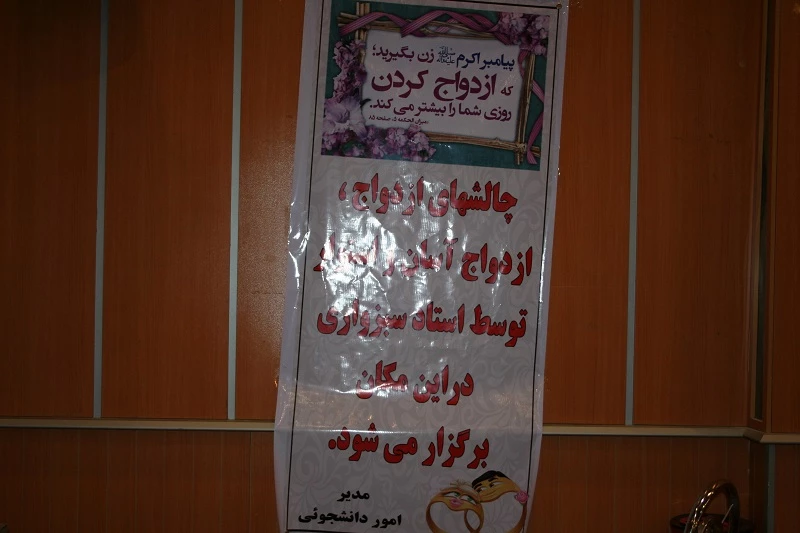 پیامبر اکرم ﷺ زن بگیرید؛
که ازدواج کردن
روزی شما را بیشتر می کند.
میزان الحکمه ۵، صفحه ۸۵
چالشهای ازدواج ،
ازدواج آسان
توسط استاد سبزواری
دراین مکان
برگزار می شود.
مدیر
امور دانشجوئی